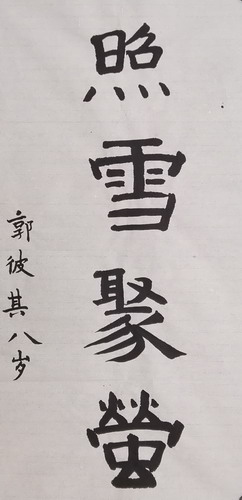 照雪聚螢
郭彼其八岁